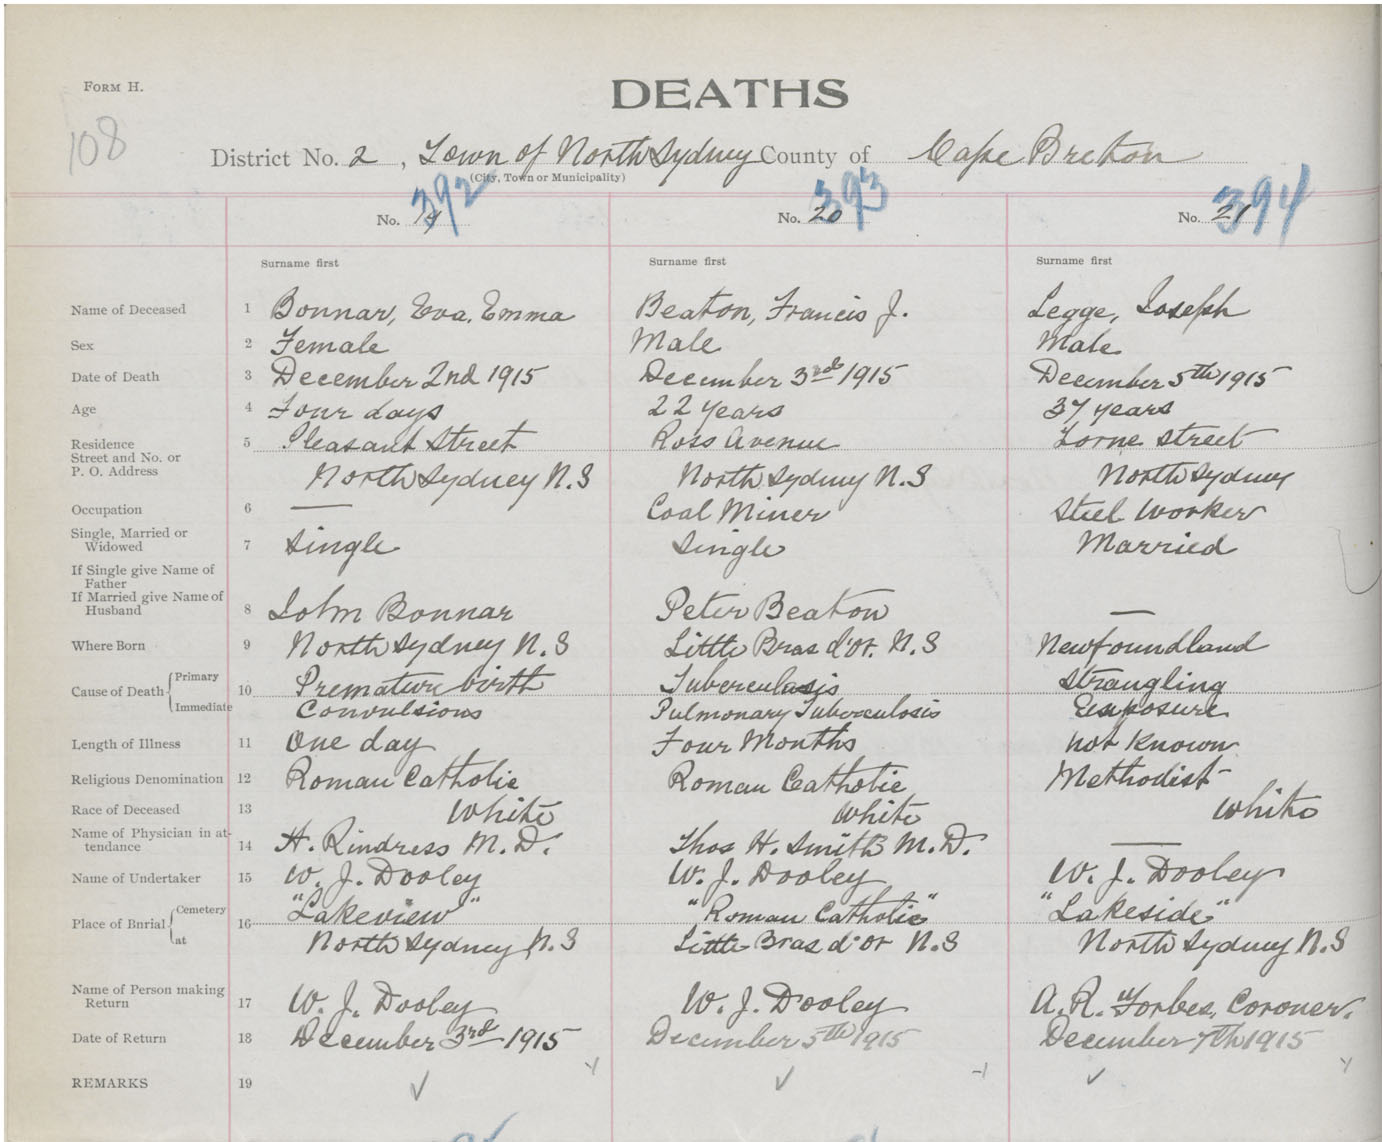 FORM H.
DEATHS
108
District No. 2, Town of North Sydney County of Cape Breton
(City, Town or Municipality)
392 393 394
No. 19 No. 20 No. 21
Surname first Surname first Surname first
Name of Deceased 1 Bonnar, Eva, Emma Beaton, Francis J. Legge, Joseph
Sex 2 Female Male Male
Date of Death 3 December 2nd 1915 December 3rd 1915 December 5th 1915
Age 4 Four days 22 years 37 years
Residence 5 Pleasant Street Ross Avenue Lorne Street
Street and No. or
P. O. Address North Sydney N.S North Sydney N.S North Sydney
Occupation 6 — Coal Miner Steel Worker
Single, Married or
Widowed 7 Single Single Married
If Single give Name of
Father
If Married give Name of
Husband 8 John Bonnar Peter Beaton —
Where Born 9 North Sydney N.S Little Bras d'or. N.S Newfoundland
Cause of Death { Primary 10 Premature birth Tuberculosis Strangling
Immediate Convulsions Pulmonary Tuberculosis Exposure
Length of Illness 11 One day Four Months not Known
Religious Denomination 12 Roman Catholic Roman Catholic Methodist
Race of Deceased 13 White White White
Name of Physician in at-
tendance 14 H. Rindress M.D. Thos H. Smith M.D. —
Name of Undertaker 15 W. J. Dooley W. J. Dooley W. J. Dooley
Place of Bnrial { Cemetery 16 "Lakeview" "Roman Catholic" "Lakeside"
at North Sydney N.S Little Bras d'or N.S North Sydney N.S
Name of Person making
Return 17 W. J. Dooley W. J. Dooley A. R. Forbes, Coroner.
Date of Return 18 December 3rd 1915 December 5th 1915 December 7th 1915
REMARKS 19 ✓ ✓ ✓